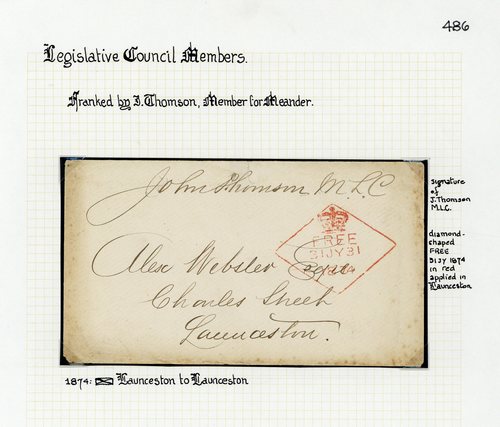 486
Legislative Council Members.
Franked by J. Thomson, Member for Meander.
John Thomson M.L.C
FREE
31 JY 31
Alex Webster Esqre
Charles Street
Launceston.
signature
of
J. Thomson
M.L.C.
diamond-
shaped
FREE
31 JY 1874
in red
applied in
Launceston
1874: Launceston to Launceston